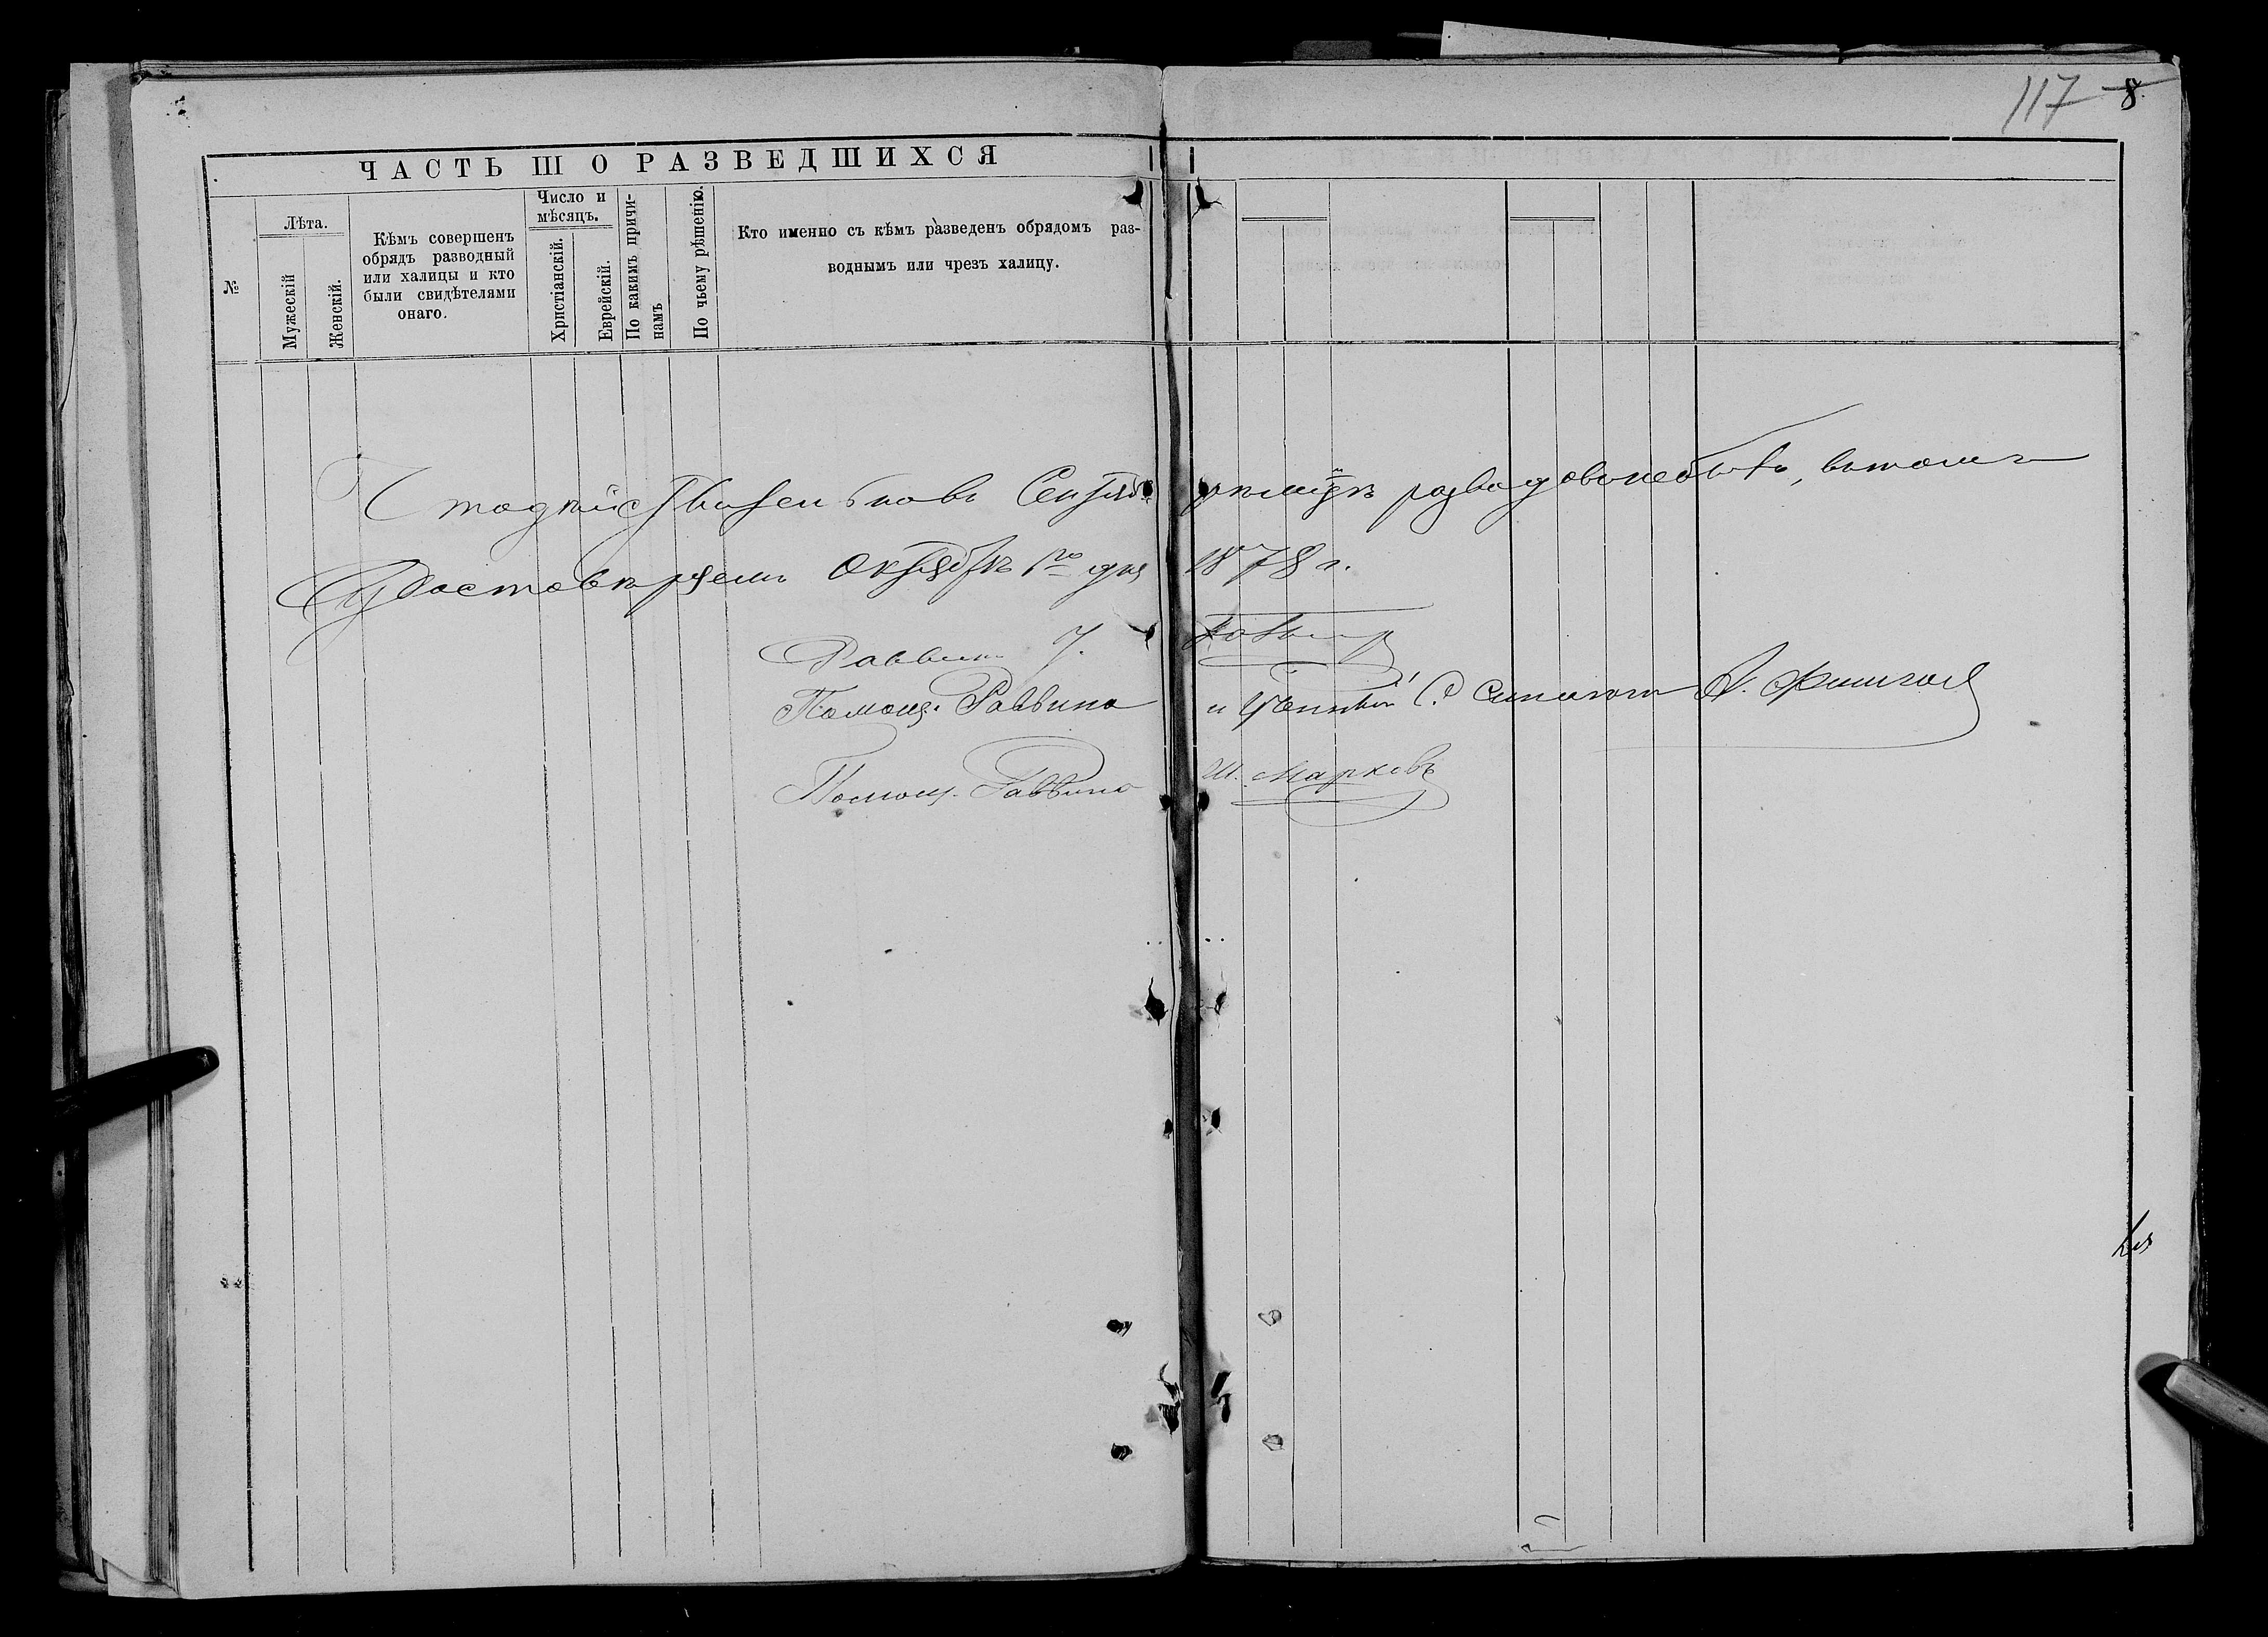 117 8.
ЧАСТЬ III О РАЗВЕДШИХСЯ
№
Лѣта.
Мужескій
Женскій.
Кѣмъ совершенъ
обрядъ разводный
или халицы и кто
были свидѣтелями
онаго.
Число и
мѣсяцъ.
Христіанскій.
Еврейскій.
По какимъ причи-
намъ
По чьему рѣшенію.
Кто именно съ кѣмъ разведенъ обрядомъ раз-
воднымъ или чрезъ халицу.
разводовъ небыло, въ томъ
Удостовѣряемъ Октября 1го дня 1878 г.
Раввинъ
Помощ. Раввина и Ученый С.
Помощ. Раввина Ш. Марковъ